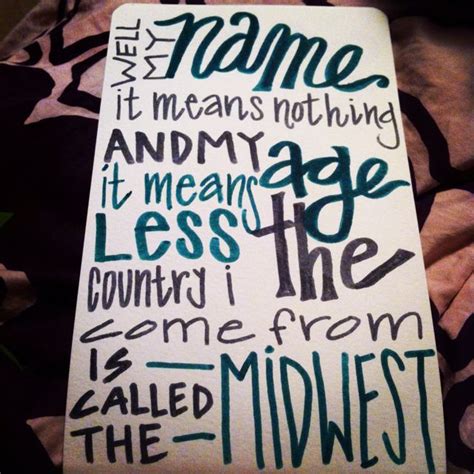 WELL MY name
it means nothing
AND MY age
it means
LESS the
COUNTRY i
come from
IS
CALLED
THE — MIDWEST